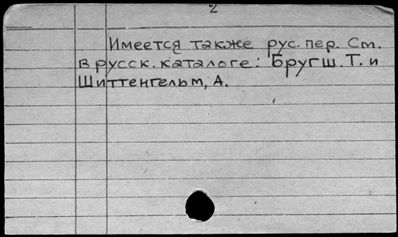 2
Имеется также рус. пер. См.
в русск. каталоге: Бругш. Т. и
Шиттенгельм, А.